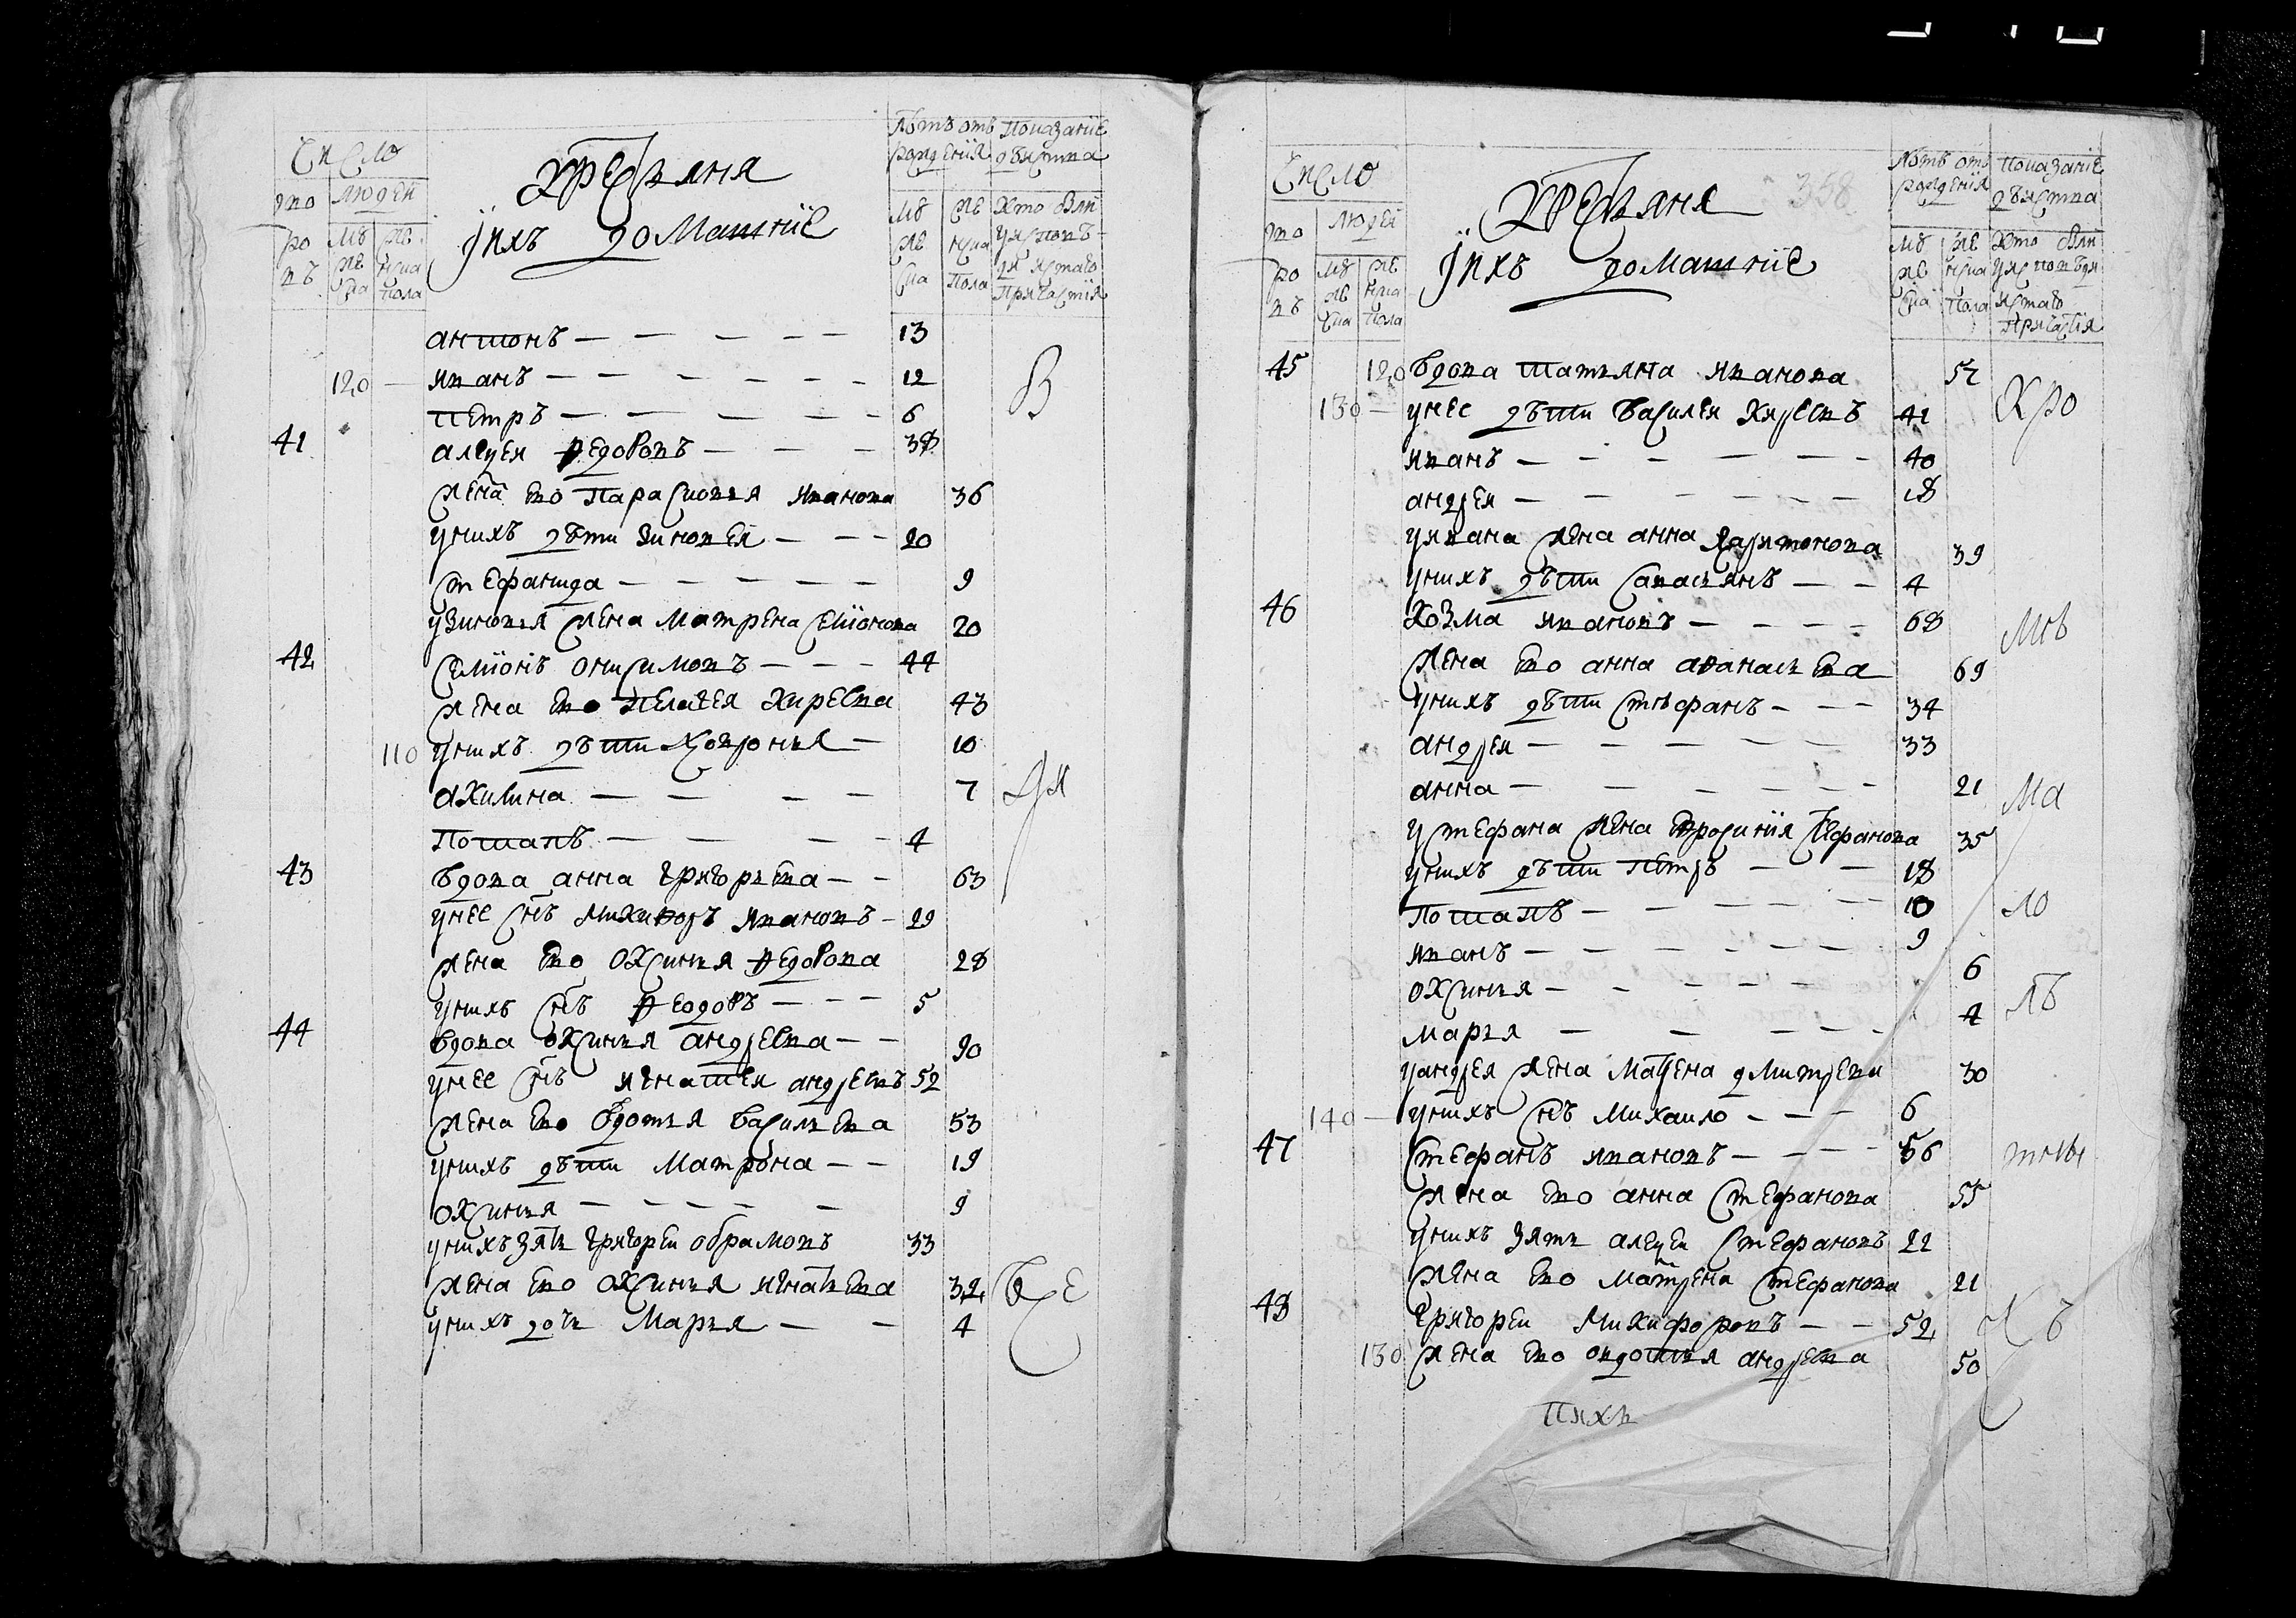 Число
дво
ров
людей
мужеска
женска пола
Крестьяня
и ихъ домашнiе
Лѣтъ от рожденiя
мужеска
женска пола
Показанiе дѣиства
Кто был у исповѣди и святаго причастiя
антонъ 13
120 иванъ 12
петръ 6
В
41 алеѯеи Ѳедоровъ 38
жена ево парасковья иванова 36
у нихъ дѣти Зиновеи 20
стефанида 9
у Зиновья жена Матрена семiонова 20
42 семiонъ онисимовъ 44
жена ево пелагея Киреева 43
110 у нихъ дѣти 10
акилина 7
потапъ 4
43 Вдова анна григорьева 63
у нее снъ Никиѳоръ ивановъ 29
жена ево оксинья Ѳедорова 28
у нихъ снъ Ѳеодоръ 5
44 вдова оксинья андреева 90
у нее снъ игнатеи андреевъ 52
жена ево вдотья василева 53
у нихъ дѣти Матрѣна 19
оксинья 9
у нихъ зять григореи обрамовъ 33
жена ево оксинья игнатьева 32
у нихъ дочь Марья 4
Все
358
Число
дво
ров
людей
мужеска
женска пола
Крестьяня
и ихъ домашнiе
Лѣтъ от рожденiя
мужеска
женска пола
Показанiе дѣиства
Кто был у исповѣди и святаго причастiя
45 120 вдова татьяна иванова 57
Кро
130 у нее дѣти василеи Киреевъ 41
иванъ 40
андреи 18
у ивана жена анна Харитонова 39
у нихъ дѣти савасьянъ 4
46 Козма ивановъ 68
мѣ
жена ево анна аѳанасьева 69
у нихъ дѣти стефанъ 34
андреи 33
анна 21
ма
у стефана жена евросинiя стефанова 35
у нихъ дѣти петръ 18
потапъ 10
ло
иванъ 9
оксинья 6
лѣ
марья 4
у андрея жена Матрена дмитрева 30
140 у нихъ снъ михаило 6
47 стефанъ ивановъ 56
тны
жена ево анна стефанова 55
у нихъ зять алеѯеи стефановъ 22
жена ево матрена стефанова 21
48 григореи Никифоровъ 52
хъ
130 жена ево овдотья андреева 50